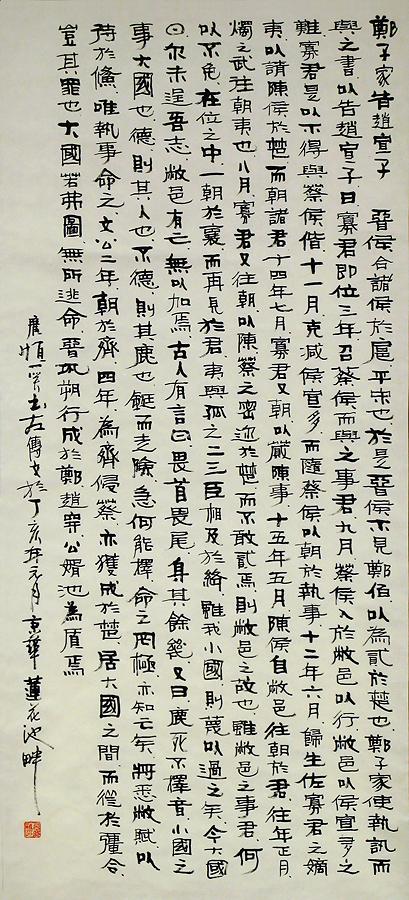 鄭子家告趙宣子 晉侯合諸侯於扈平宋也於是晉侯不見鄭伯以為貳於楚也鄭子家使執訊而
與之書以告趙宣子曰寡君即位三年召蔡侯而與之事君九月蔡侯入於敝邑以行敝邑以侯宣多之
難寡君是以不得與蔡侯偕十一月克減侯宣多而隨蔡侯以朝於執事十二年六月歸生佐寡君之嫡
夷以請陳侯於楚而朝諸君十四年七月寡君又朝以蕆陳事十五年五月陳侯自敝邑往朝於君往年正月
燭之武往朝夷也八月寡君又往朝以陳蔡之密邇於楚而不敢貳焉則敝邑之故也雖敝邑之事君何
以不免在位之中一朝於襄而再見於君夷與孤之二三臣相及於絳雖我小國則蔑以過之矣今大國
曰尔未逞吾志敝邑有亡無以加焉古人有言曰畏首畏尾身其餘幾又曰鹿死不擇音小國之
事大國也德則其人也不德則其鹿也鋌而走險急何能擇命之罔極亦知亡矣將悉敝賦以
待於鯈唯執事命之文公二年朝於齊四年為齊侵蔡亦獲成於楚居大國之間而從於彊令
豈其罪也大國若弗圖無所逃命晉鞏朔行成於鄭趙穿公婿池為質焉
一書左傳文於丁亥年元月京華蓮花池畔